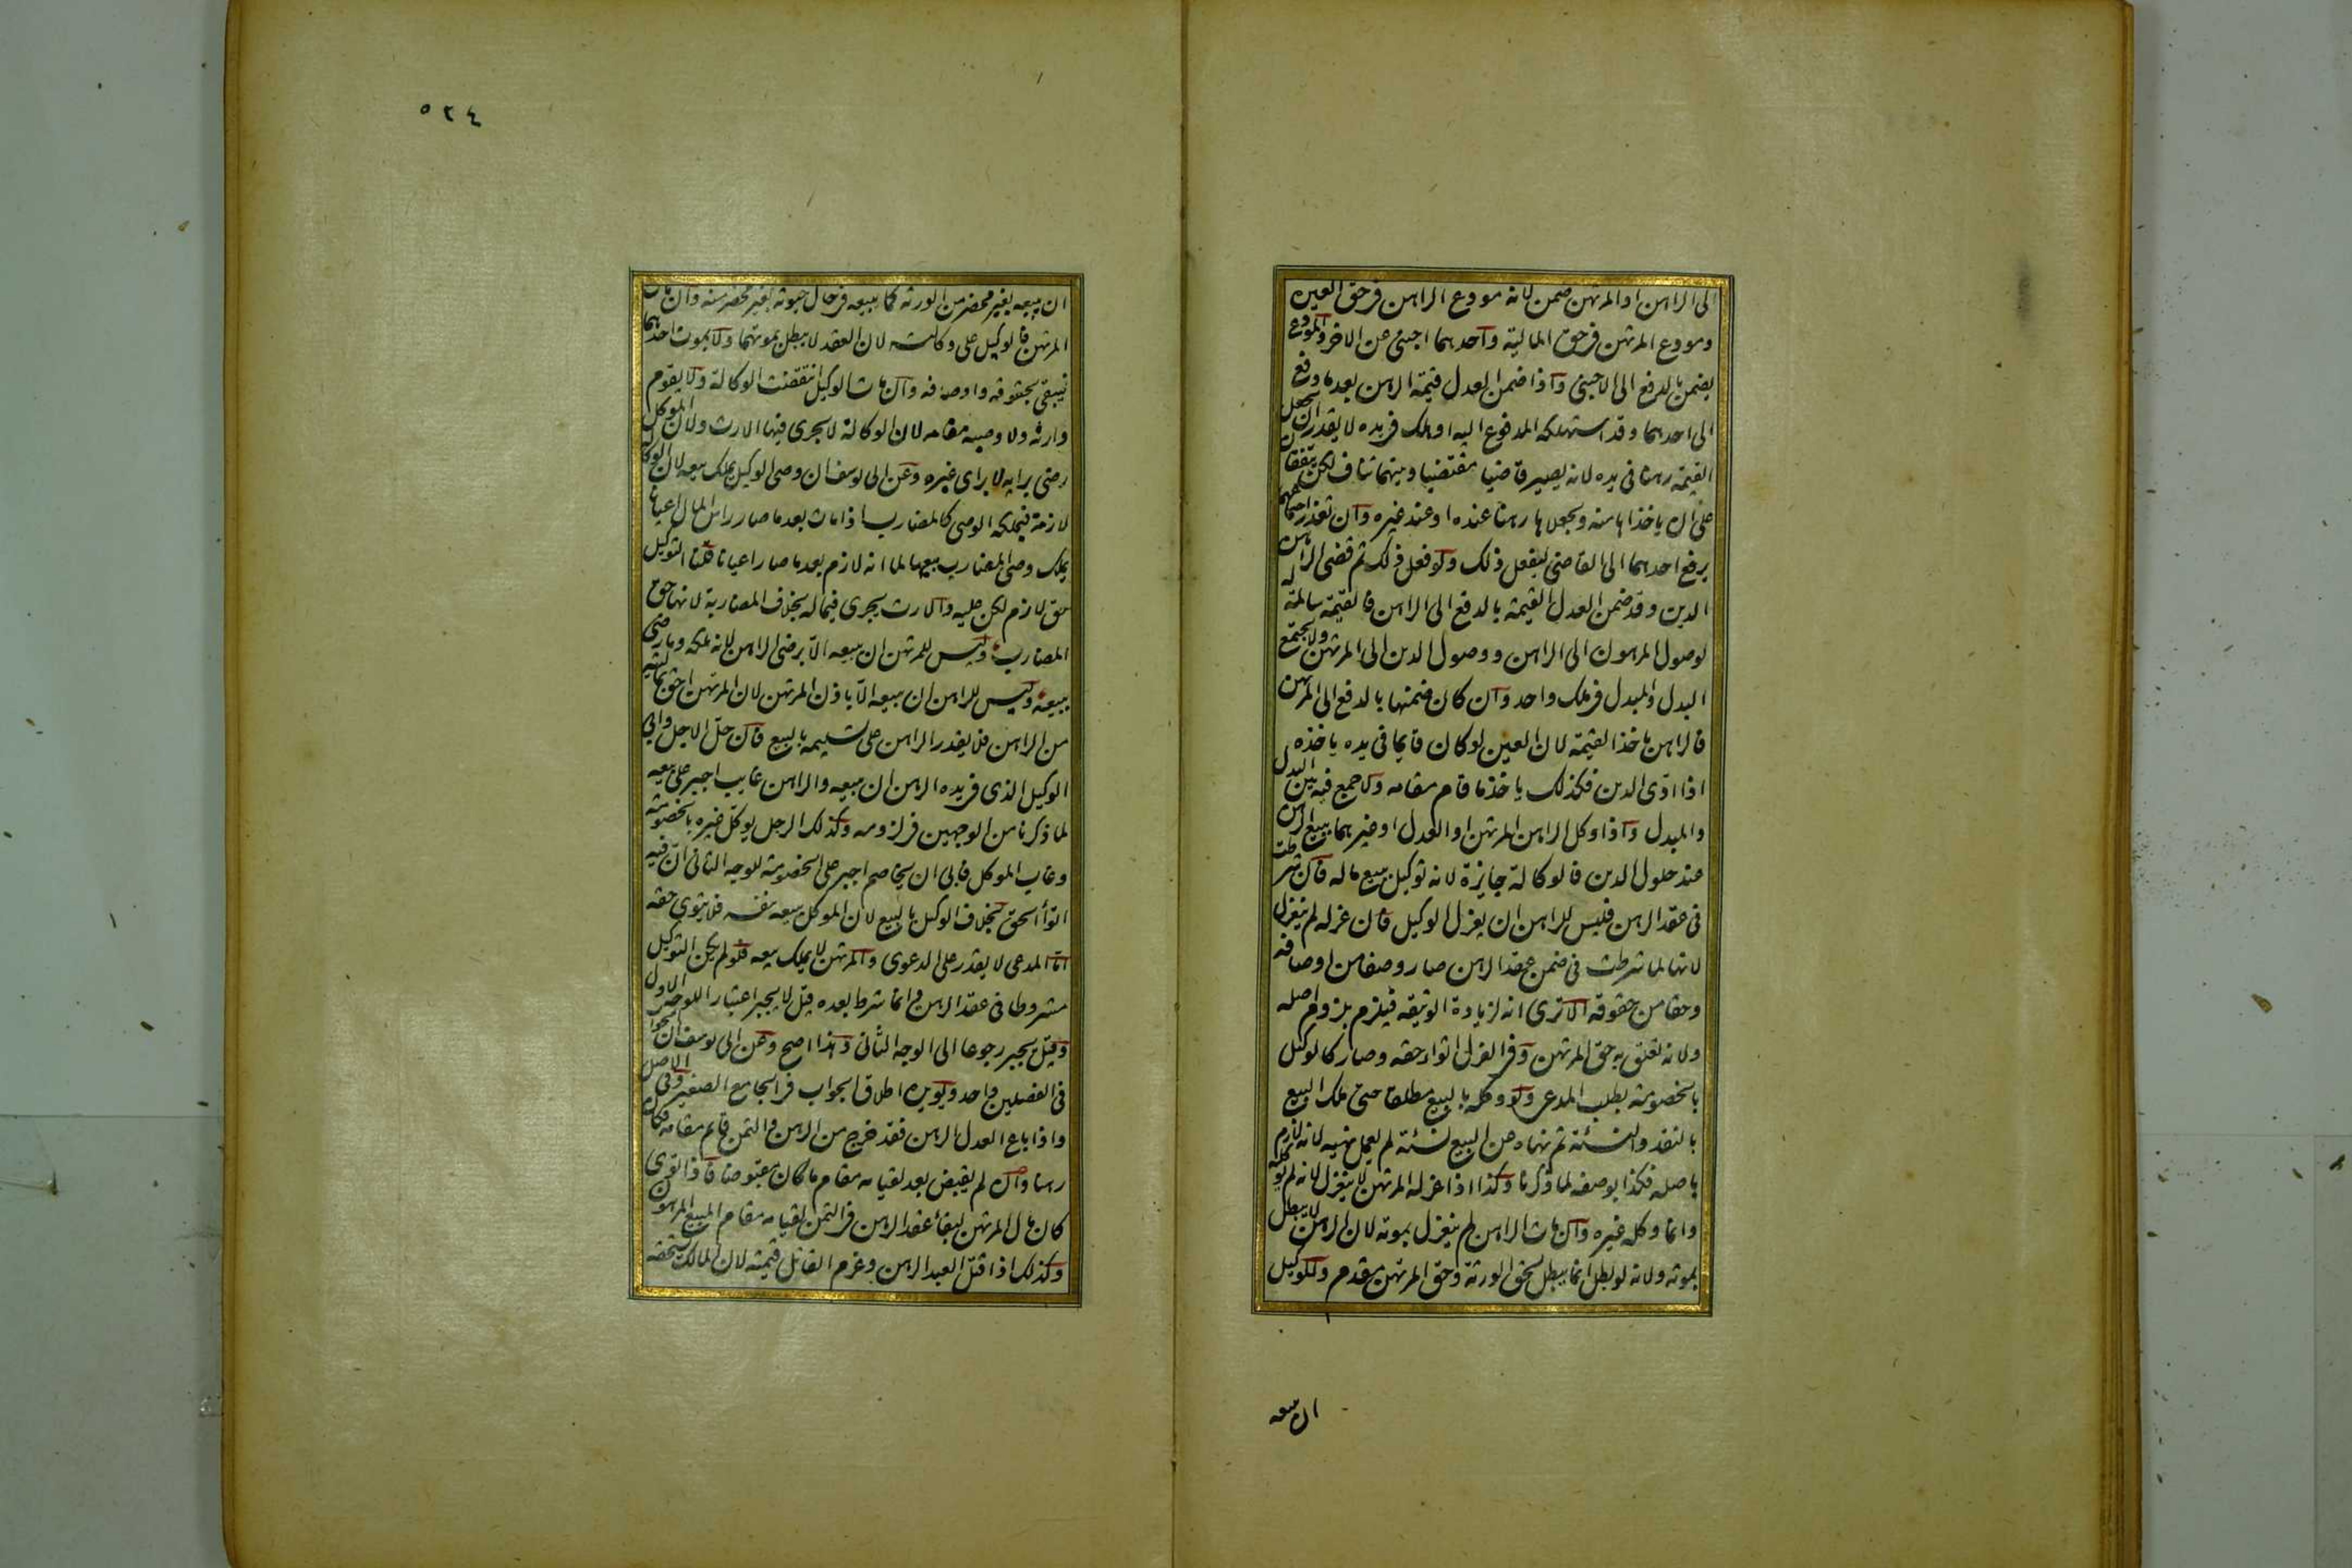 الى الراهن او المرتهن ضمن لانه مودع الراهن فى حق العين
ومودع المرتهن فى حق المالية واحدهما اجنبى عن الاخر والمودع
يضمن بالدفع الى الاجنبى واذا ضمن العدل قيمة الرهن بعد ما دفع
الى احدهما وقد استهلكه المدفوع اليه او هلك فى يده لا يقدر ان يجعل
القيمة رهنا فى يده لانه يصير قاضيا مقتضيا وبينهما تناف لكن يتفقان
على ان ياخذاها منه ويجعلاها رهنا عنده او عند غيره وان تعذر اجتماعهما
يرفع احدهما الى القاضى ليفعل ذلك ولو فعل ذلك ثم قضى الراهن
الدين وقد ضمن العدل القيمة بالدفع الى الراهن فالقيمة سالمة له
لوصول المرهون الى الراهن ووصول الدين الى المرتهن ولا يجتمع
البدل والمبدل فى ملك واحد وان كان ضمنها بالدفع الى المرتهن
فالراهن ياخذ القيمة لان العين لو كان قايما فى يده ياخذه
اذا ادى الدين فكذلك ياخذ ما قام مقامه ولا جمع فيه بين البدل
والمبدل واذا وكل الراهن المرتهن او العدل او غيرهما ببيع الرهن
عند حلول الدين فالوكالة جايزة لانه توكيل ببيع ماله فان شرطت
فى عقد الرهن فليس للراهن ان يعزل الوكيل فان عزله لم ينعزل
لانها لما شرطت فى ضمن عقد الرهن صار وصفا من اوصافه
وحقا من حقوقه الا ترى انه لزيادة الوثيقه فيلزم بلزوم اصله
ولانه تعلق به حق المرتهن وفى العزل اتواء حقه وصار كالوكيل
بالخصومة بطلب المدعى ولو وكله بالبيع مطلقا حتى ملك البيع
بالنقد والنسئة ثم نهاه عن البيع نسئة لم يعمل نهيه لانه لازم
باصله فكذا بوصفه لما ذكرنا وكذا اذا عزله المرتهن لا ينعزل لانه لم يوكله
وانما وكله غيره وان مات الراهن لم ينعزل بموته لان الرهن لا يبطل
بموته ولانه لو بطل انما يبطل لحق الورثة وحق المرتهن مقدم وللوكيل
ان يبيعه
٥٢٤
ان يبيعه بغير محضر من الورثه كما يبيعه فى حال حيوته بغير محضر منه وان مات
المرتهن فالوكيل على وكالته لان العقد لا يبطل بموتهما ولا بموت احدهما
فيبقى بحقوقه واوصافه وان مات الوكيل انتقضت الوكالة ولا يقوم
وارثه ولا وصيه مقامه لان الوكالة لا يجرى فيها الارث ولان الموكل
رضى برايه لا براى غيره وعن ابى يوسف ان وصى الوكيل يملك بيعه لان الوكالة
لازمة فيملكه الوصى كالمضارب اذا مات بعد ما صار راس المال اعيانا
يملك وصى المضارب بيعها لما انه لازم بعد ما صار اعيانا قلنا التوكيل
حق لازم لكن عليه والارث يجرى فيما له بخلاف المضاربة لانها حق
المضارب وليس للمرتهن ان يبيعه الا برضى الراهن لانه ملكه وما رضى
ببيعه وليس للراهن ان يبيعه الا باذن المرتهن لان المرتهن احق بماليته
من الراهن فلا يقدر الراهن على تسليمه بالبيع فان حل الاجل وابى
الوكيل الذى فى يده الرهن ان يبيعه والراهن غايب اجبر على بيعه
لما ذكرنا من الوجهين فى لزومه وكذلك الرجل يوكل غيره بالخصومة
وغاب الموكل فابى ان يخاصم اجبر على الخصومة للوجه الثانى ان فيه
اتواء الحق بخلاف الوكيل بالبيع لان الموكل يبيعه بنفسه فلا يتوى حقه
اما المدعى لا يقدر على الدعوى والمرتهن لا يملك بيعه فلو لم يكن التوكيل
مشروطا فى عقد الرهن وانما شرط بعده قيل لا يجبر اعتبارا للوجه الاول
وقيل يجبر رجوعا الى الوجه الثانى وهذا اصح وعن ابى يوسف ان الجواب
فى الفصلين واحد ويؤيده اطلاق الجواب فى الجامع الصغير وفى الاصل
واذا باع العدل الرهن فقد خرج من الرهن والثمن قايم مقامه فكان
رهنا وان لم يقبض بعد لقيامه مقام ما كان مقبوضا فاذا توى
كان مال المرتهن لبقاء عقد الرهن فى الثمن لقيامه مقام المبيع المرهون
وكذلك اذا قتل العبد الرهن وغرم القاتل قيمته لان المالك يستحقه